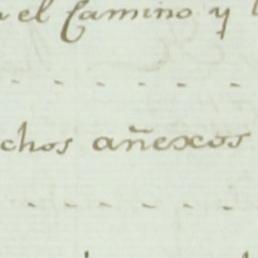 el Camino y
chos añexos